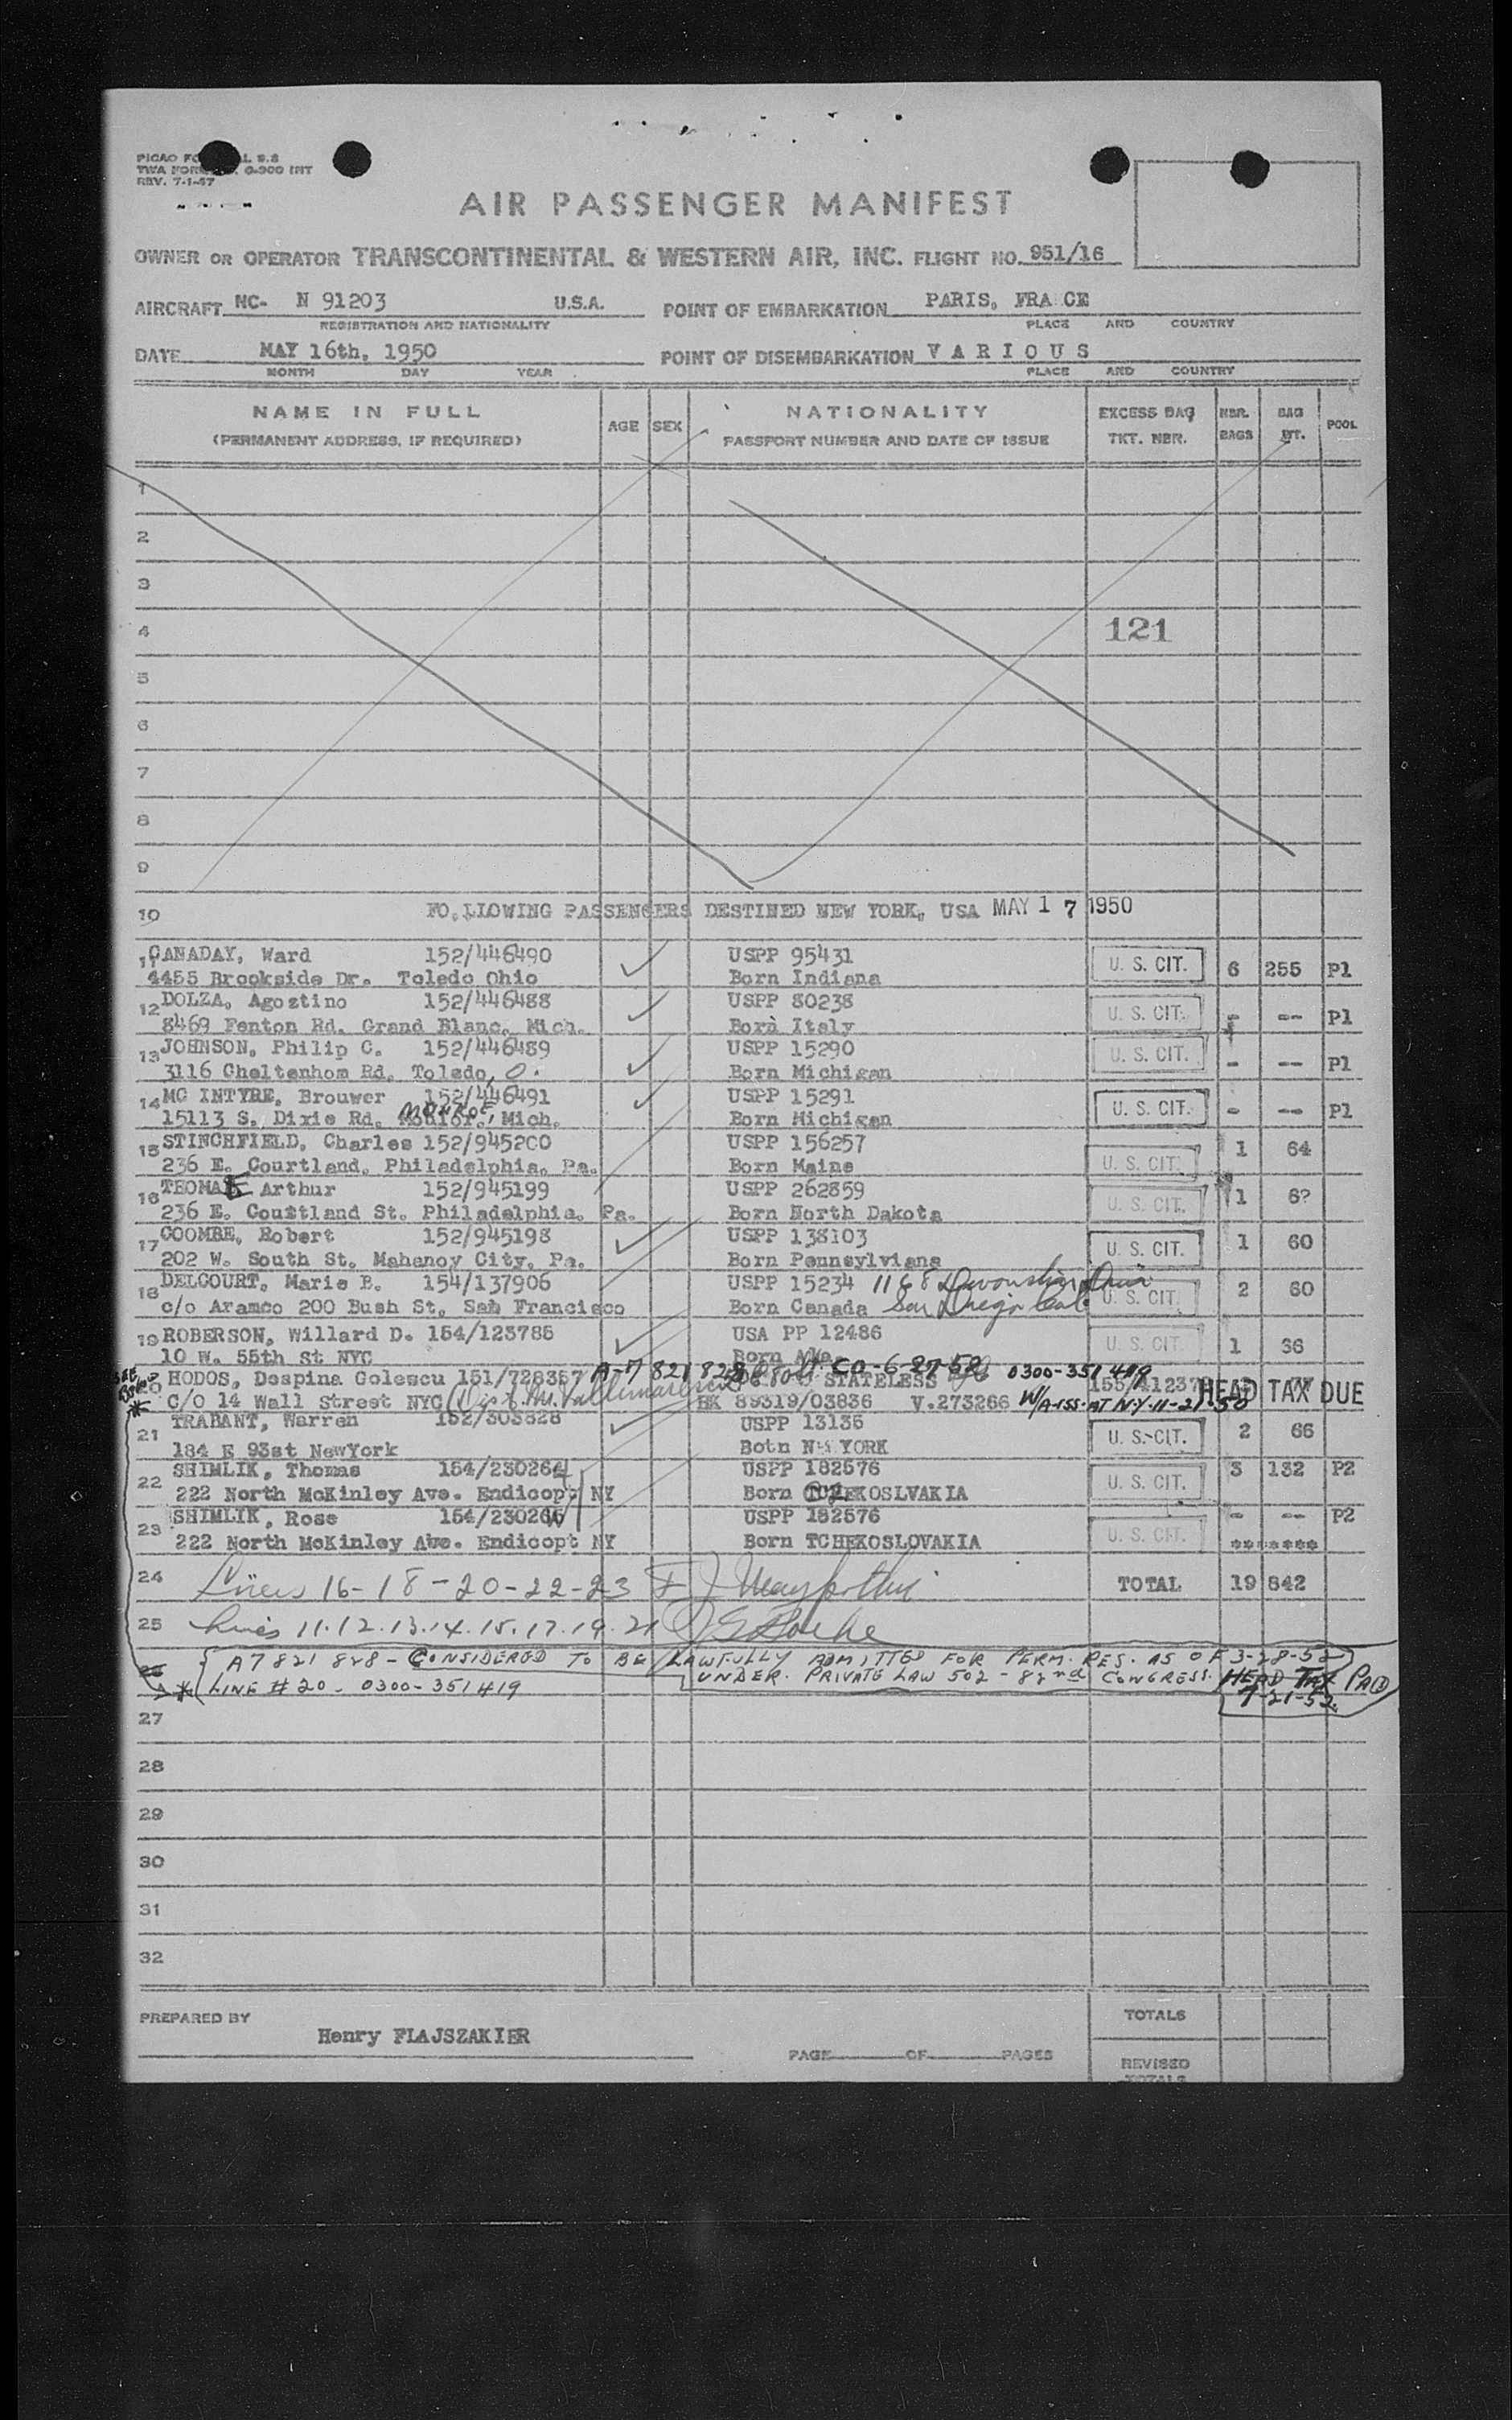 AIR PASSENGER MANIFEST
REV. 7-1-47
OWNER OR OPERATOR TRANSCONTINENTAL & WESTERN AIR, INC. FLIGHT NO. 951/16
AIRCRAFT NC- N 91203 U.S.A. POINT OF EMBARKATION PARIS, FRA CE
REGISTRATION AND NATIONALITY PLACE AND COUNTRY
DATE MAY 16th, 1950 POINT OF DISEMBARKATION V A R I O U S
MONTH DAY YEAR PLACE AND COUNTRY
NAME IN FULL AGE SEX NATIONALITY EXCESS BAG NBR. BAG POOL
(PERMANENT ADDRESS, IF REQUIRED) PASSPORT NUMBER AND DATE OF ISSUE TKT. NBR. BAGS WT.
1
2
3
4 121
5
6
7
8
9
10 FO.LLOWING PASSENGERS DESTINED NEW YORK, USA MAY 17 1950
11 CANADAY, Ward 152/446490 USPP 95431 U. S. CIT. 6 255 P1
4455 Brookside Dr. Toledo Ohio Born Indiana
12 DOLZA, Agostino 152/446488 USPP 80238 U. S. CIT. - -- P1
8469 Fenton Rd. Grand Blanc, Mich. Born Italy
13 JOHNSON, Philip C. 152/446489 USPP 15290 U. S. CIT. - -- P1
3116 Cheltenhom Rd. Toledo, O. Born Michigan
14 MC INTYRE, Brouwer 152/446491 USPP 15291 U. S. CIT. - -- P1
15113 S. Dixie Rd. MONROE, Mich. Born Michigan
15 STINCHFIELD, Charles 152/945200 USPP 156257 U. S. CIT. 1 64
236 E. Courtland, Philadelphia, Pa. Born Maine
16 Arthur 152/945199 USPP 262859 U. S. CIT. 1 6?
236 E. Courtland St. Philadelphia, Pa. Born North Dakota
17 COOMBE, Robert 152/945198 USPP 138103 U. S. CIT. 1 60
202 W. South St. Mahanoy City, Pa. Born Pennsylviana
18 DELCOURT, Marie B. 154/137906 USPP 15234 1168 Devonshire Drive U. S. CIT. 2 60
c/o Aramco 200 Bush St, Sah Francisco Born Canada San Diego Cal.
19 ROBERSON, Willard D. 154/123785 USA PP 12486 U. S. CIT. 1 36
10 W. 55th St NYC Born
SEE BELOW
20 HODOS, Despina Golescu 151/728357 A-7 821 828 STATELESS CO-6-27-52 0300-351419
* c/o 14 Wall Street NYC EK 89319/03836 V.273266 W/A-ISS. AT N.Y. 11-21-50 HEAD TAX DUE
21 TRABANT, Warren 152/303828 USPP 13136 U. S. CIT. 2 66
184 E 93st NewYork Botn NEW YORK
22 SHIMLIK, Thomas 154/230264 USPP 182576 U. S. CIT. 3 132 P2
222 North McKinley Ave. Endicopt NY Born TCHEKOSLVAKIA
23 SHIMLIK, Rose 154/230265 USPP 182576 U. S. CIT. - -- P2
222 North McKinley Ave. Endicopt NY Born TCHEKOSLOVAKIA *******
24 Lines 16-18-20-22-23 TOTAL 19 842
25 Lines 11.12.13.14.15.17.19.21
26 A7 821 828 - CONSIDERED TO BE LAWFULLY ADMITTED FOR PERM. RES. AS OF 3-28-52
UNDER PRIVATE LAW 502 - 82nd CONGRESS. HEAD TAX PAID
* LINE # 20 - 0300-351419 7-21-52
27
28
29
30
31
32
PREPARED BY TOTALS
Henry FLAJSZAKIER
PAGE OF PAGES REVISED
TOTALS